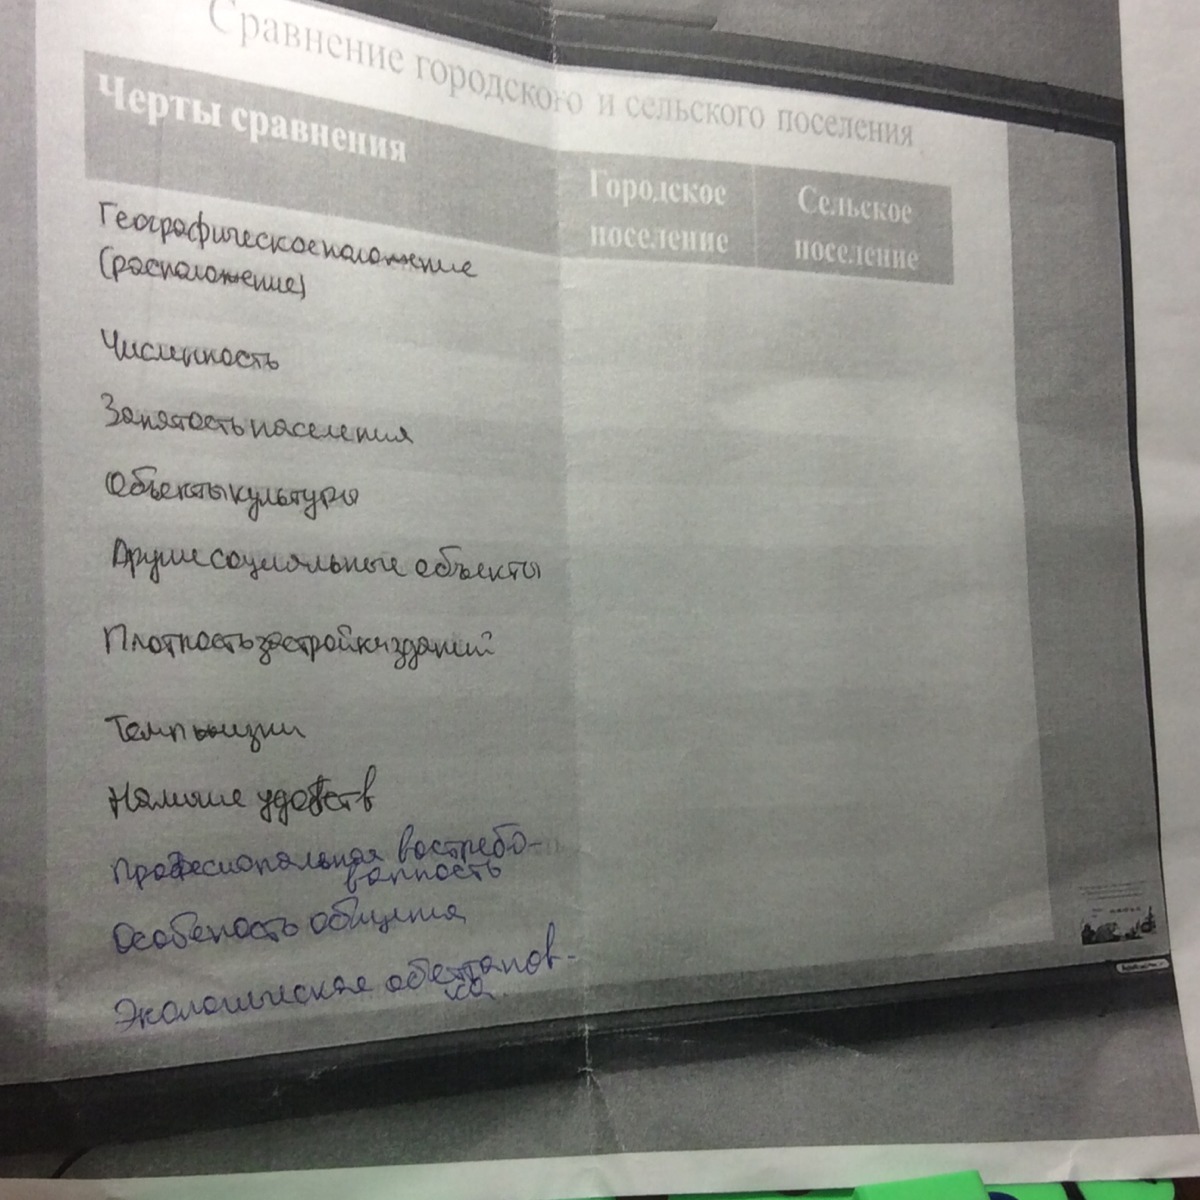 Сравнение городского и сельского поселения
Черты сравнения
Городское
поселение
Сельское
поселение
Географическое положение
(расположение)
Численность
Занятость населения
Объекты культуры
Другие социальные объекты
Плотность застройки зданий
Темп жизни
Наличие удобств
Професиональная востребо-
ванность
Особеность общения
Экологическая обстанов-
ка